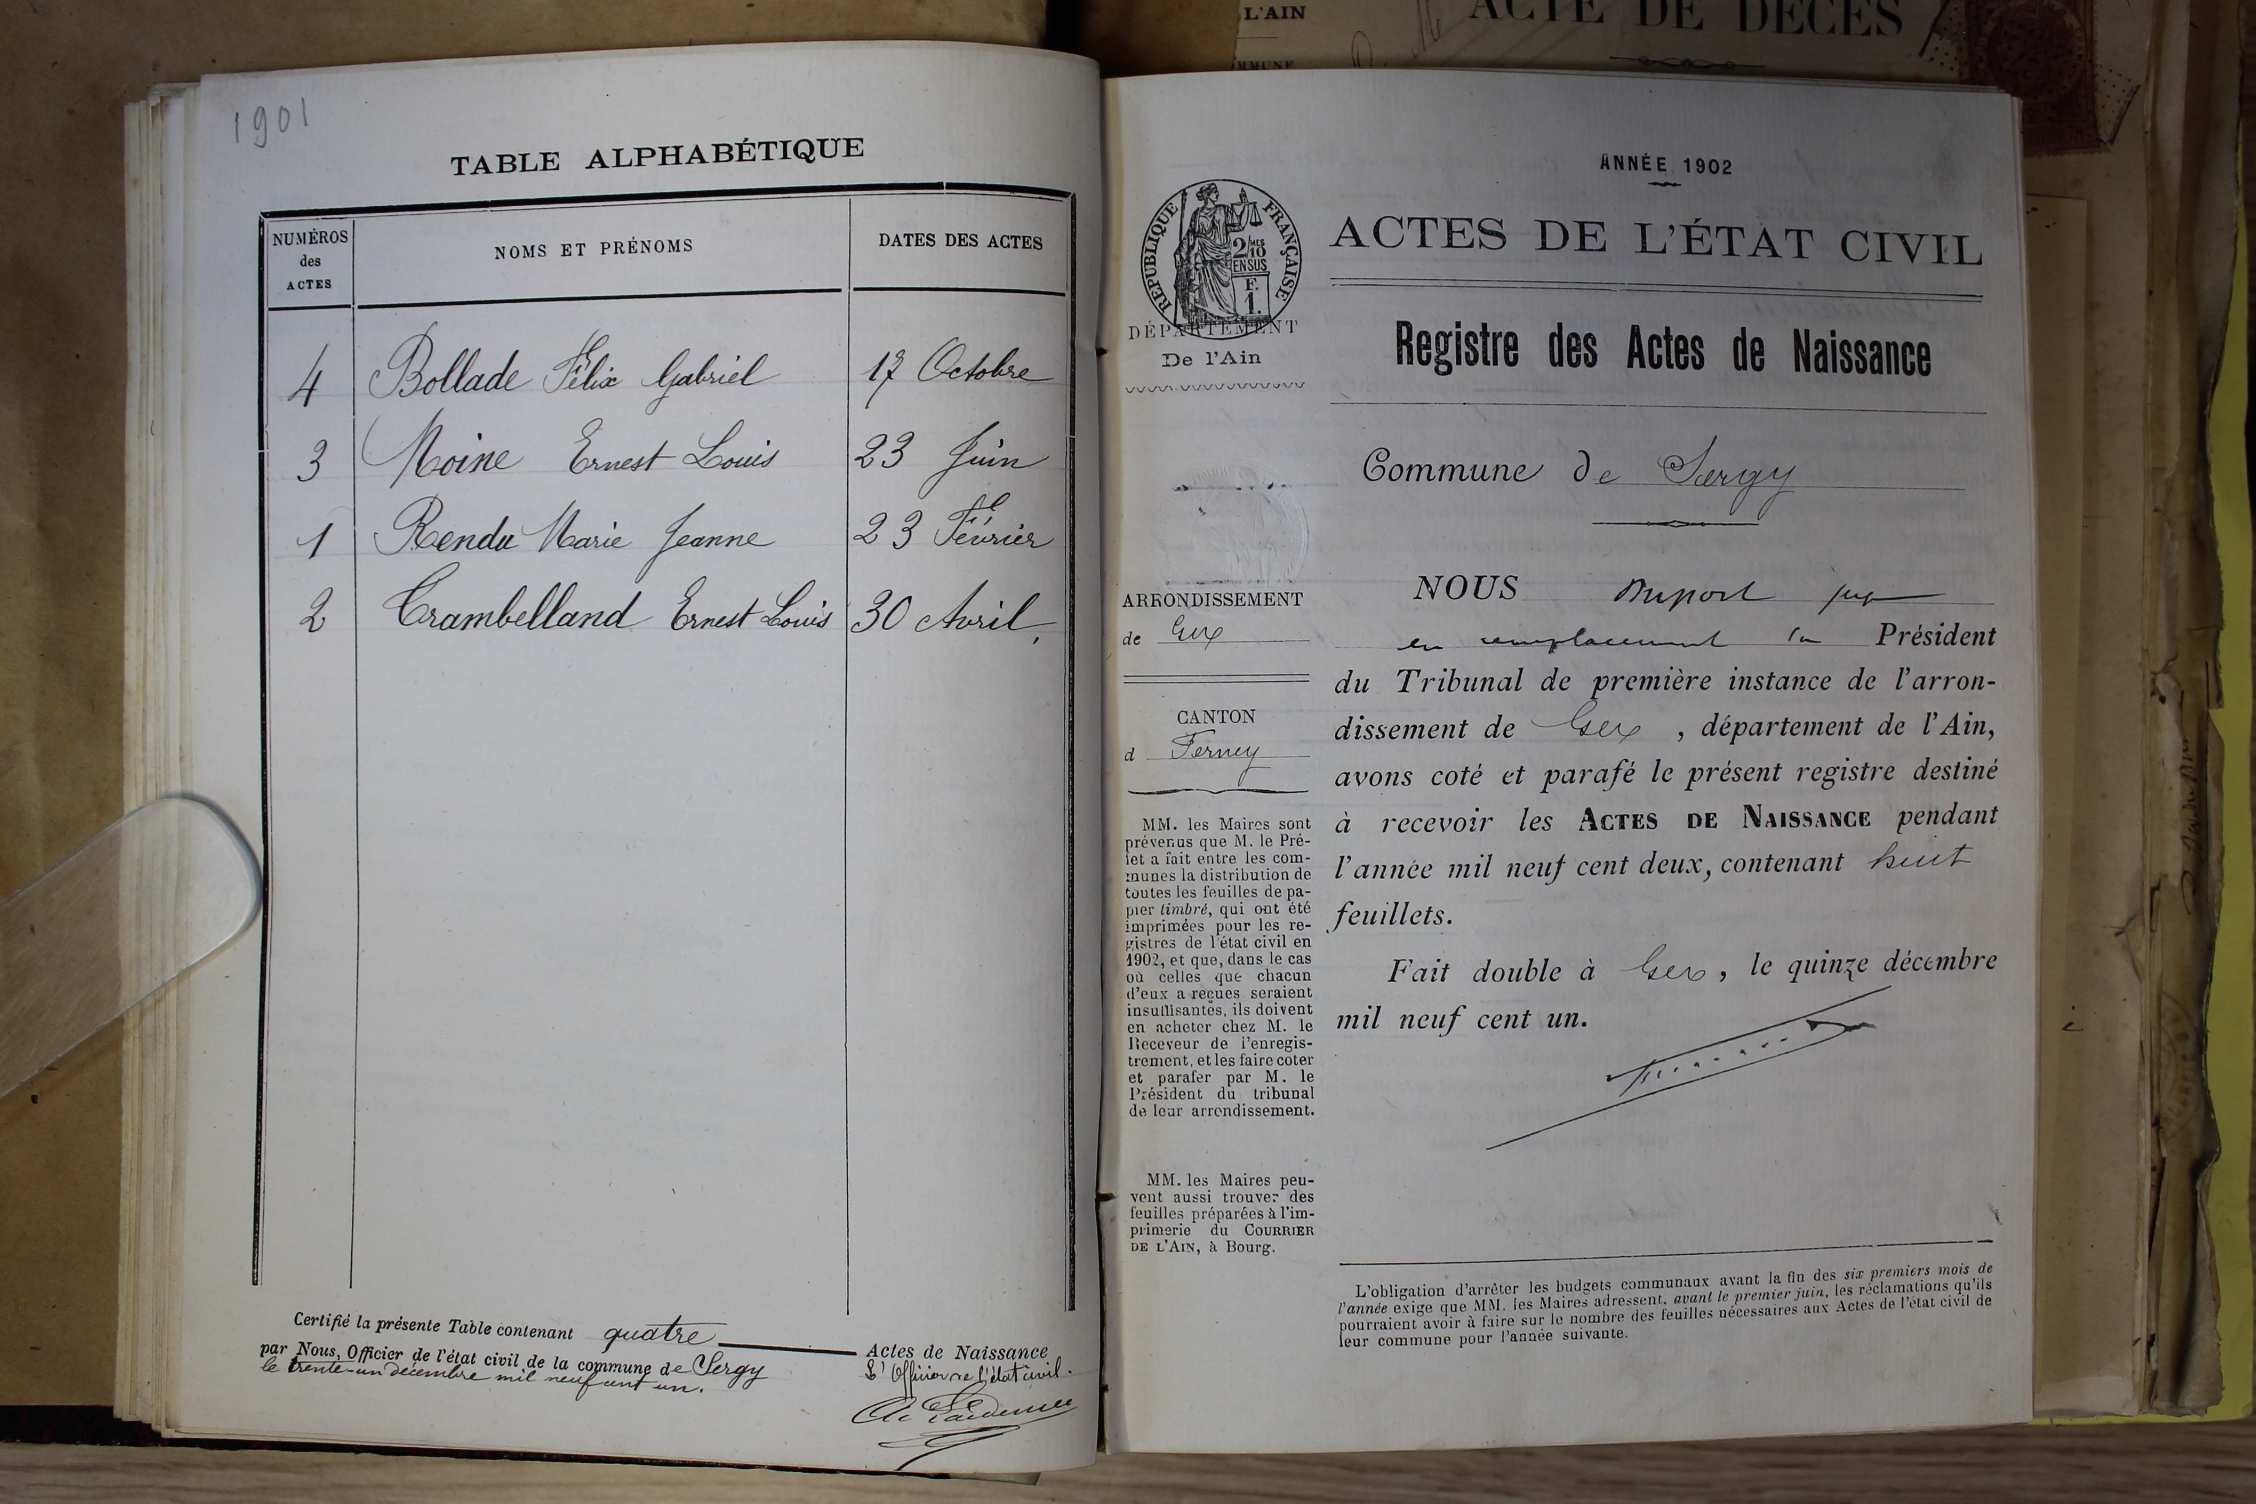 L'AIN
ACTE DE DÉCÈS
1901
TABLE ALPHABÉTIQUE
NUMÉROS
des
ACTES
NOMS ET PRÉNOMS
DATES DES ACTES
4 Bollade Félix Gabriel 17 Octobre
3 Moine Ernest Louis 23 Juin
1 Rendu Marie Jeanne 23 Février
2 Trambelland Ernest Louis 30 Avril
Certifié la présente Table contenant quatre Actes de Naissance
par Nous, Officier de l'état civil de la commune de Sergy
le trente-un décembre mil neuf cent un.
L'Officier de l'état civil.
ANNÉE 1902
ACTES DE L'ÉTAT CIVIL
RÉPUBLIQUE FRANÇAISE
2/10 MES
EN SUS
F.
1.
DÉPARTEMENT
De l'Ain
Registre des Actes de Naissance
Commune de Sergy
ARRONDISSEMENT
de Gex
CANTON
d Ferney
MM. les Maires sont
prévenus que M. le Pré-
fet a fait entre les com-
munes la distribution de
toutes les feuilles de pa-
pier timbré, qui ont été
imprimées pour les re-
gistres de l'état civil en
1902, et que, dans le cas
où celles que chacun
d'eux a reçues seraient
insuffisantes, ils doivent
en acheter chez M. le
Receveur de l'enregis-
trement, et les faire coter
et parafer par M. le
Président du tribunal
de leur arrondissement.
MM. les Maires peu-
vent aussi trouver des
feuilles préparées à l'im-
primerie du COURRIER
DE L'AIN, à Bourg.
NOUS Dupont juge
en remplacement du Président
du Tribunal de première instance de l'arron-
dissement de Gex, département de l'Ain,
avons coté et parafé le présent registre destiné
à recevoir les ACTES DE NAISSANCE pendant
l'année mil neuf cent deux, contenant huit
feuillets.
Fait double à Gex, le quinze décembre
mil neuf cent un.
L'obligation d'arrêter les budgets communaux avant la fin des six premiers mois de
l'année exige que MM. les Maires adressent, avant le premier juin, les réclamations qu'ils
pourraient avoir à faire sur le nombre des feuilles nécessaires aux Actes de l'état civil de
leur commune pour l'année suivante.